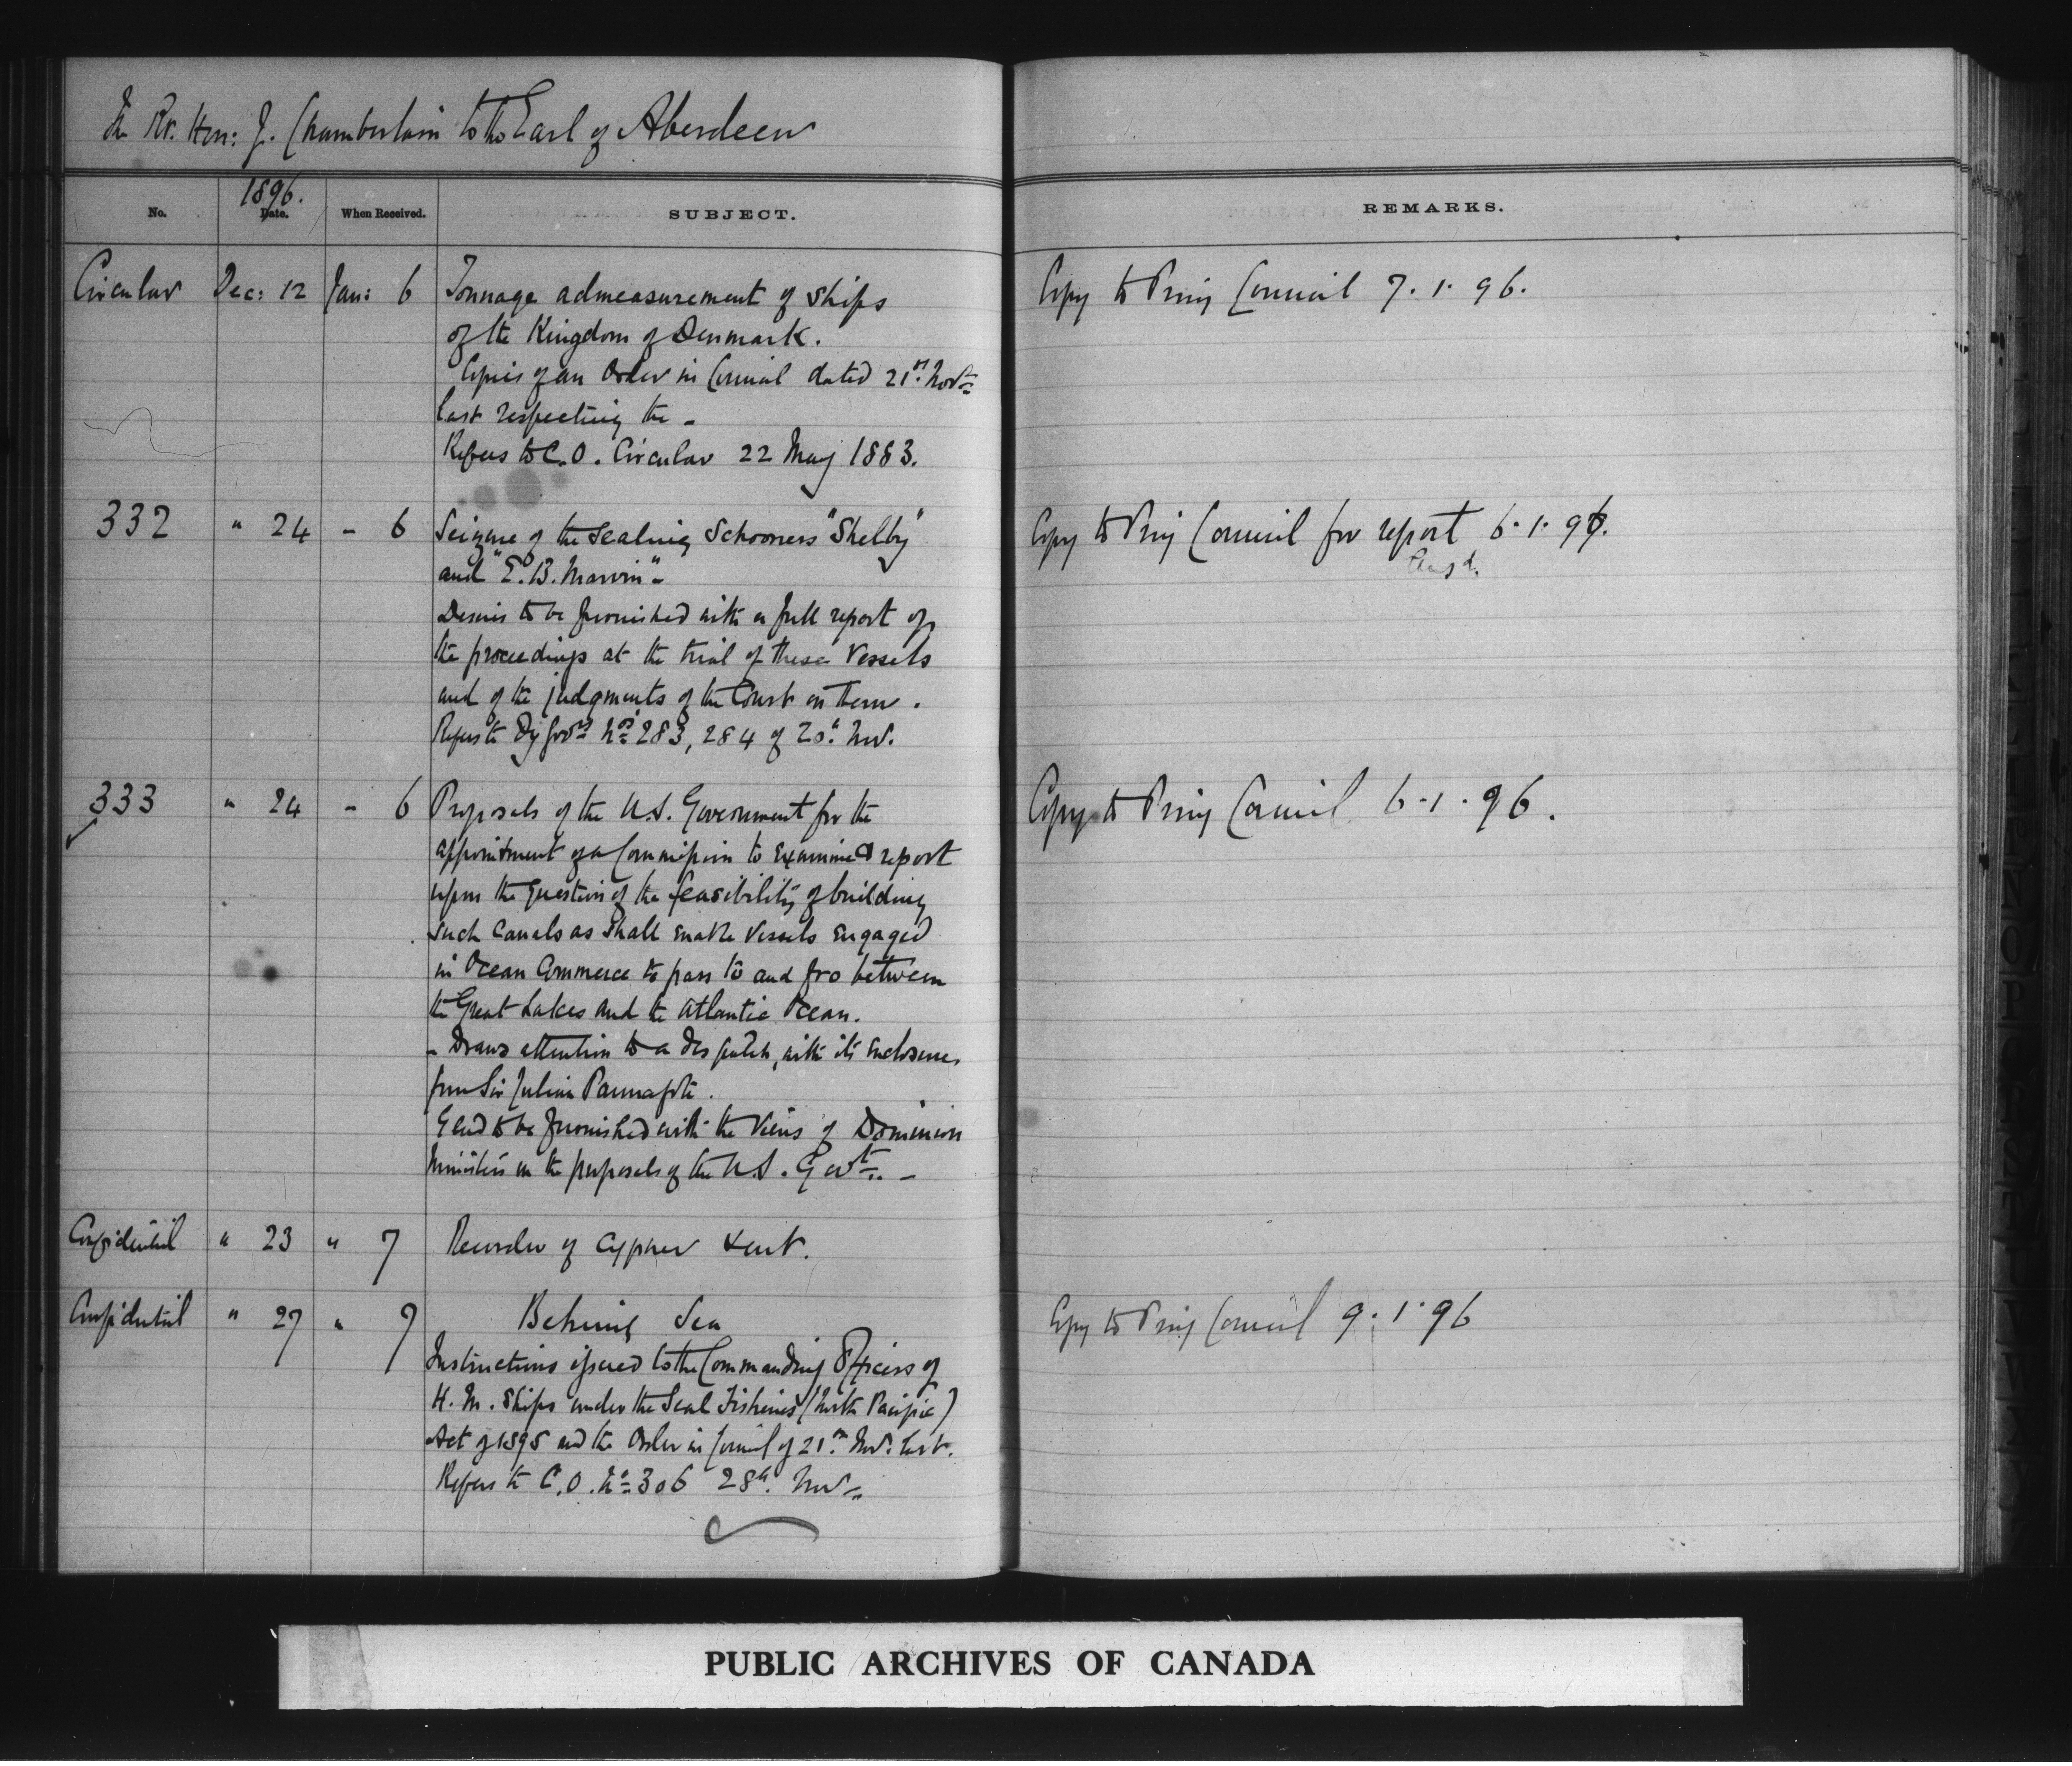 The Rt. Hon: J. Chamberlain to the Earl of Aberdeen
No.
1896.
Date.
When Received.
SUBJECT.
REMARKS.
Circular Dec: 12 Jan: 6 Tonnage admeasurement of Ships
Copy to Privy Council 7.1.96.
of the Kingdom of Denmark.
Copies of an Order in Council dated 21st Novr
last respecting the -
Refers to C.O. Circular 22 May 1883.
332 " 24 - 6 Seizure of the Sealing Schooners "Shelby"
Copy to Privy Council for report 6.1.96.
Ansd.
and "E.B. Marvin" -
Desires to be furnished with a full report of
the proceedings at the trial of these Vessels
and of the judgments of the Court on them.
Refers to Dy Govrs Nos 283, 284 of 20th Nov.
333 " 24 - 6 Proposals of the U.S. Government for the
Copy to Privy Council 6.1.96.
appointment of a Commission to examine & report
upon the question of the feasibility of building
such Canals as shall enable Vessels engaged
in Ocean Commerce to pass to and fro between
the Great Lakes and the Atlantic Ocean.
- Draws attention to a despatch, with its enclosures,
from Sir Julian Pauncefote.
Glad to be furnished with the Views of Dominion
Ministers on the proposals of the U.S. Govt. -
Confidential " 23 " 7 Recorder of Cypher sent.
Confidential " 27 " 7 Behring Sea
Copy to Privy Council 9.1.96
Instructions issued to the Commanding Officers of
H.M. Ships under the Seal Fisheries (North Pacific)
Act of 1895 and the Order in Council of 21st Nov. last.
Refers to C.O. No 306 28th Nov -
PUBLIC ARCHIVES OF CANADA